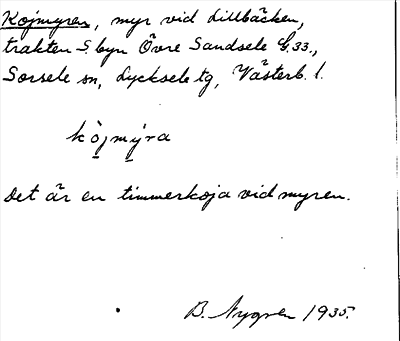 Kojmyren, myr vid Lillbäcken,
trakten S. byn Övre Sandsele G.33.,
Sorsele sn, Lycksele tg, Västerb. l.
köjmy̆ra
Det är en timmerkoja vid myren.
B. Nygren 1935.